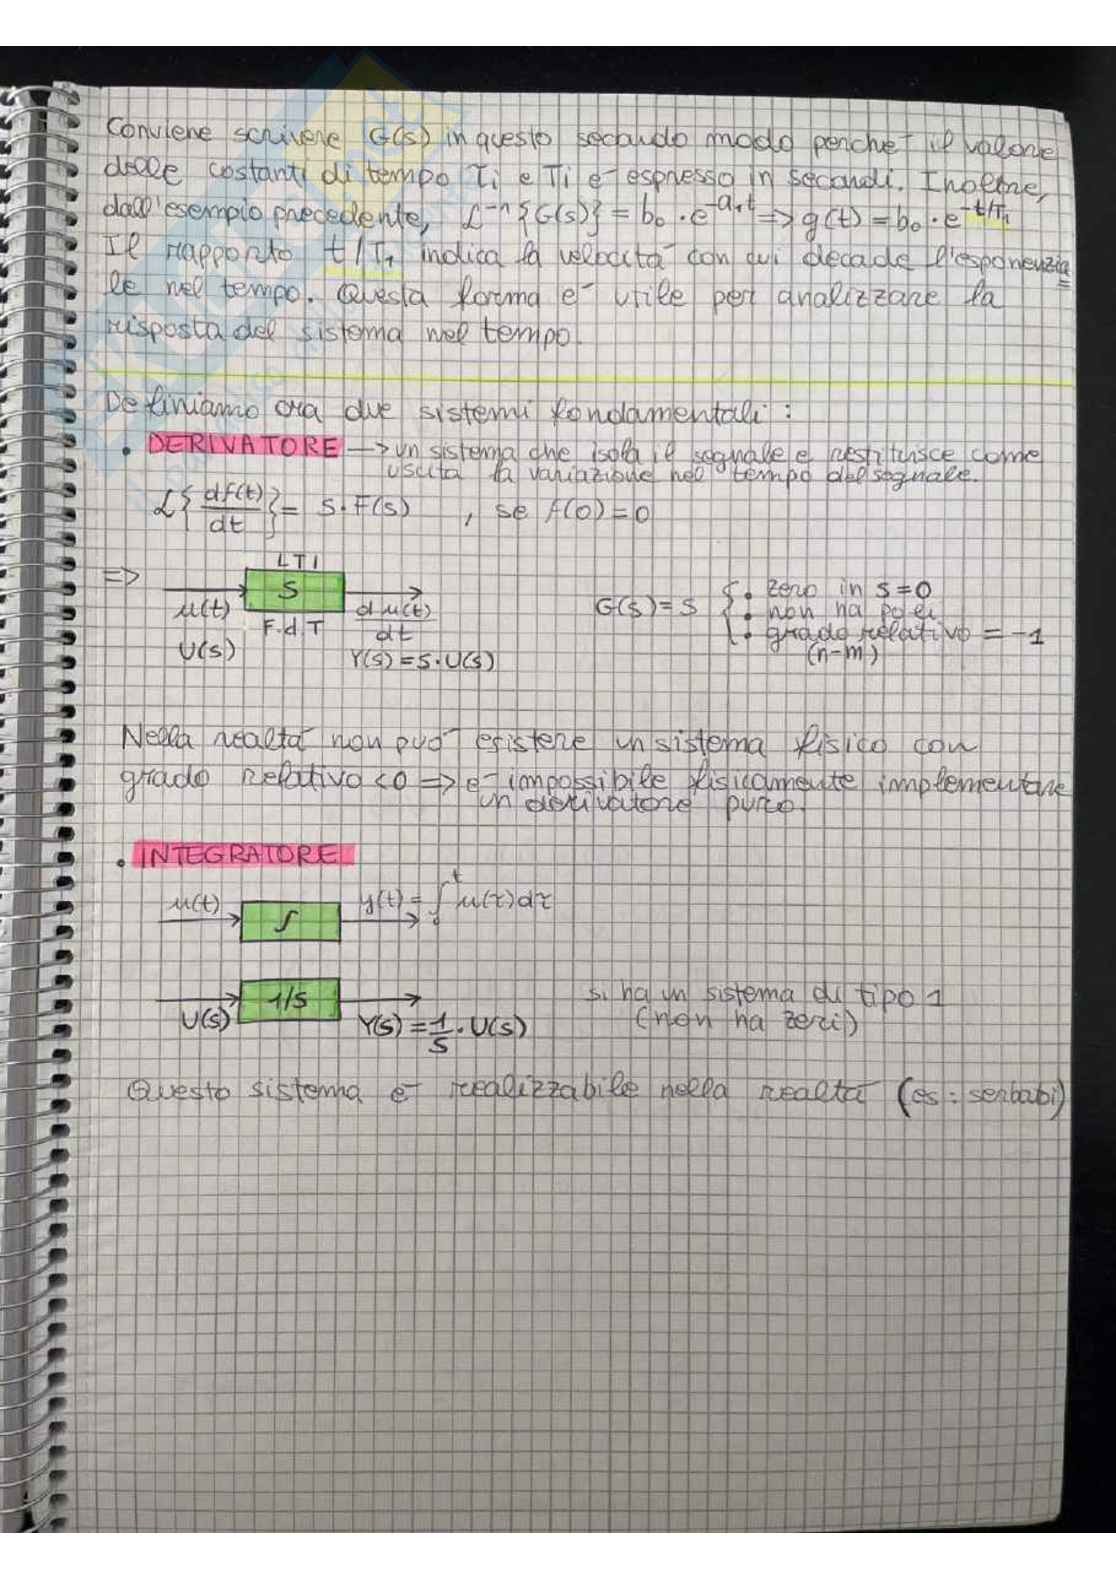 Conviene scrivere G(s) in questo secondo modo perche' il valore
delle costanti di tempo τi e Ti e' espresso in secondi. Inoltre,
dall'esempio precedente, L^-1 {G(s)} = b₀ · e^-a₁t => g(t) = b₀ · e^-t/T₁
Il rapporto t/T₁ indica la velocità con cui decade l'esponenzia
le nel tempo. Questa forma e' utile per analizzare la
risposta del sistema nel tempo.
Definiamo ora due sistemi fondamentali :
• DERIVATORE —> un sistema che isola il segnale e restituisce come
uscita la variazione nel tempo del segnale.
L{df(t)/dt} = s·F(s) , se f(0)=0
=> LTI
u(t) S du(t)/dt
U(s) F.d.T Y(s) = s·U(s)
G(s) = s { • zero in s=0
• non ha poli
• grado relativo = -1
(n-m)
Nella realtà non può esistere un sistema fisico con
grado relativo <0 => e' impossibile fisicamente implementare
un derivatore puro.
• INTEGRATORE
u(t) ∫ y(t) = ∫₀^t u(τ)dτ
U(s) 1/s Y(s) = 1/s · U(s)
si ha un sistema di tipo 1
(non ha zeri)
Questo sistema e' realizzabile nella realtà (es: serbatoi)